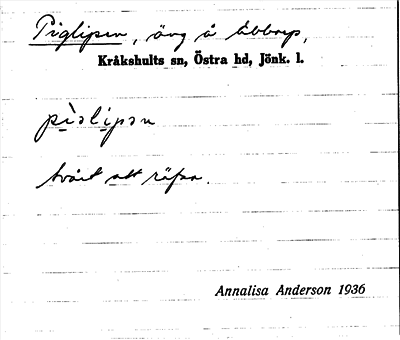 Piglipen, äng å Åbborp,
Kråkshults sn, Östra hd, Jönk. l.
pìslipən
svårt att räfsa.
Annalisa Anderson 1936